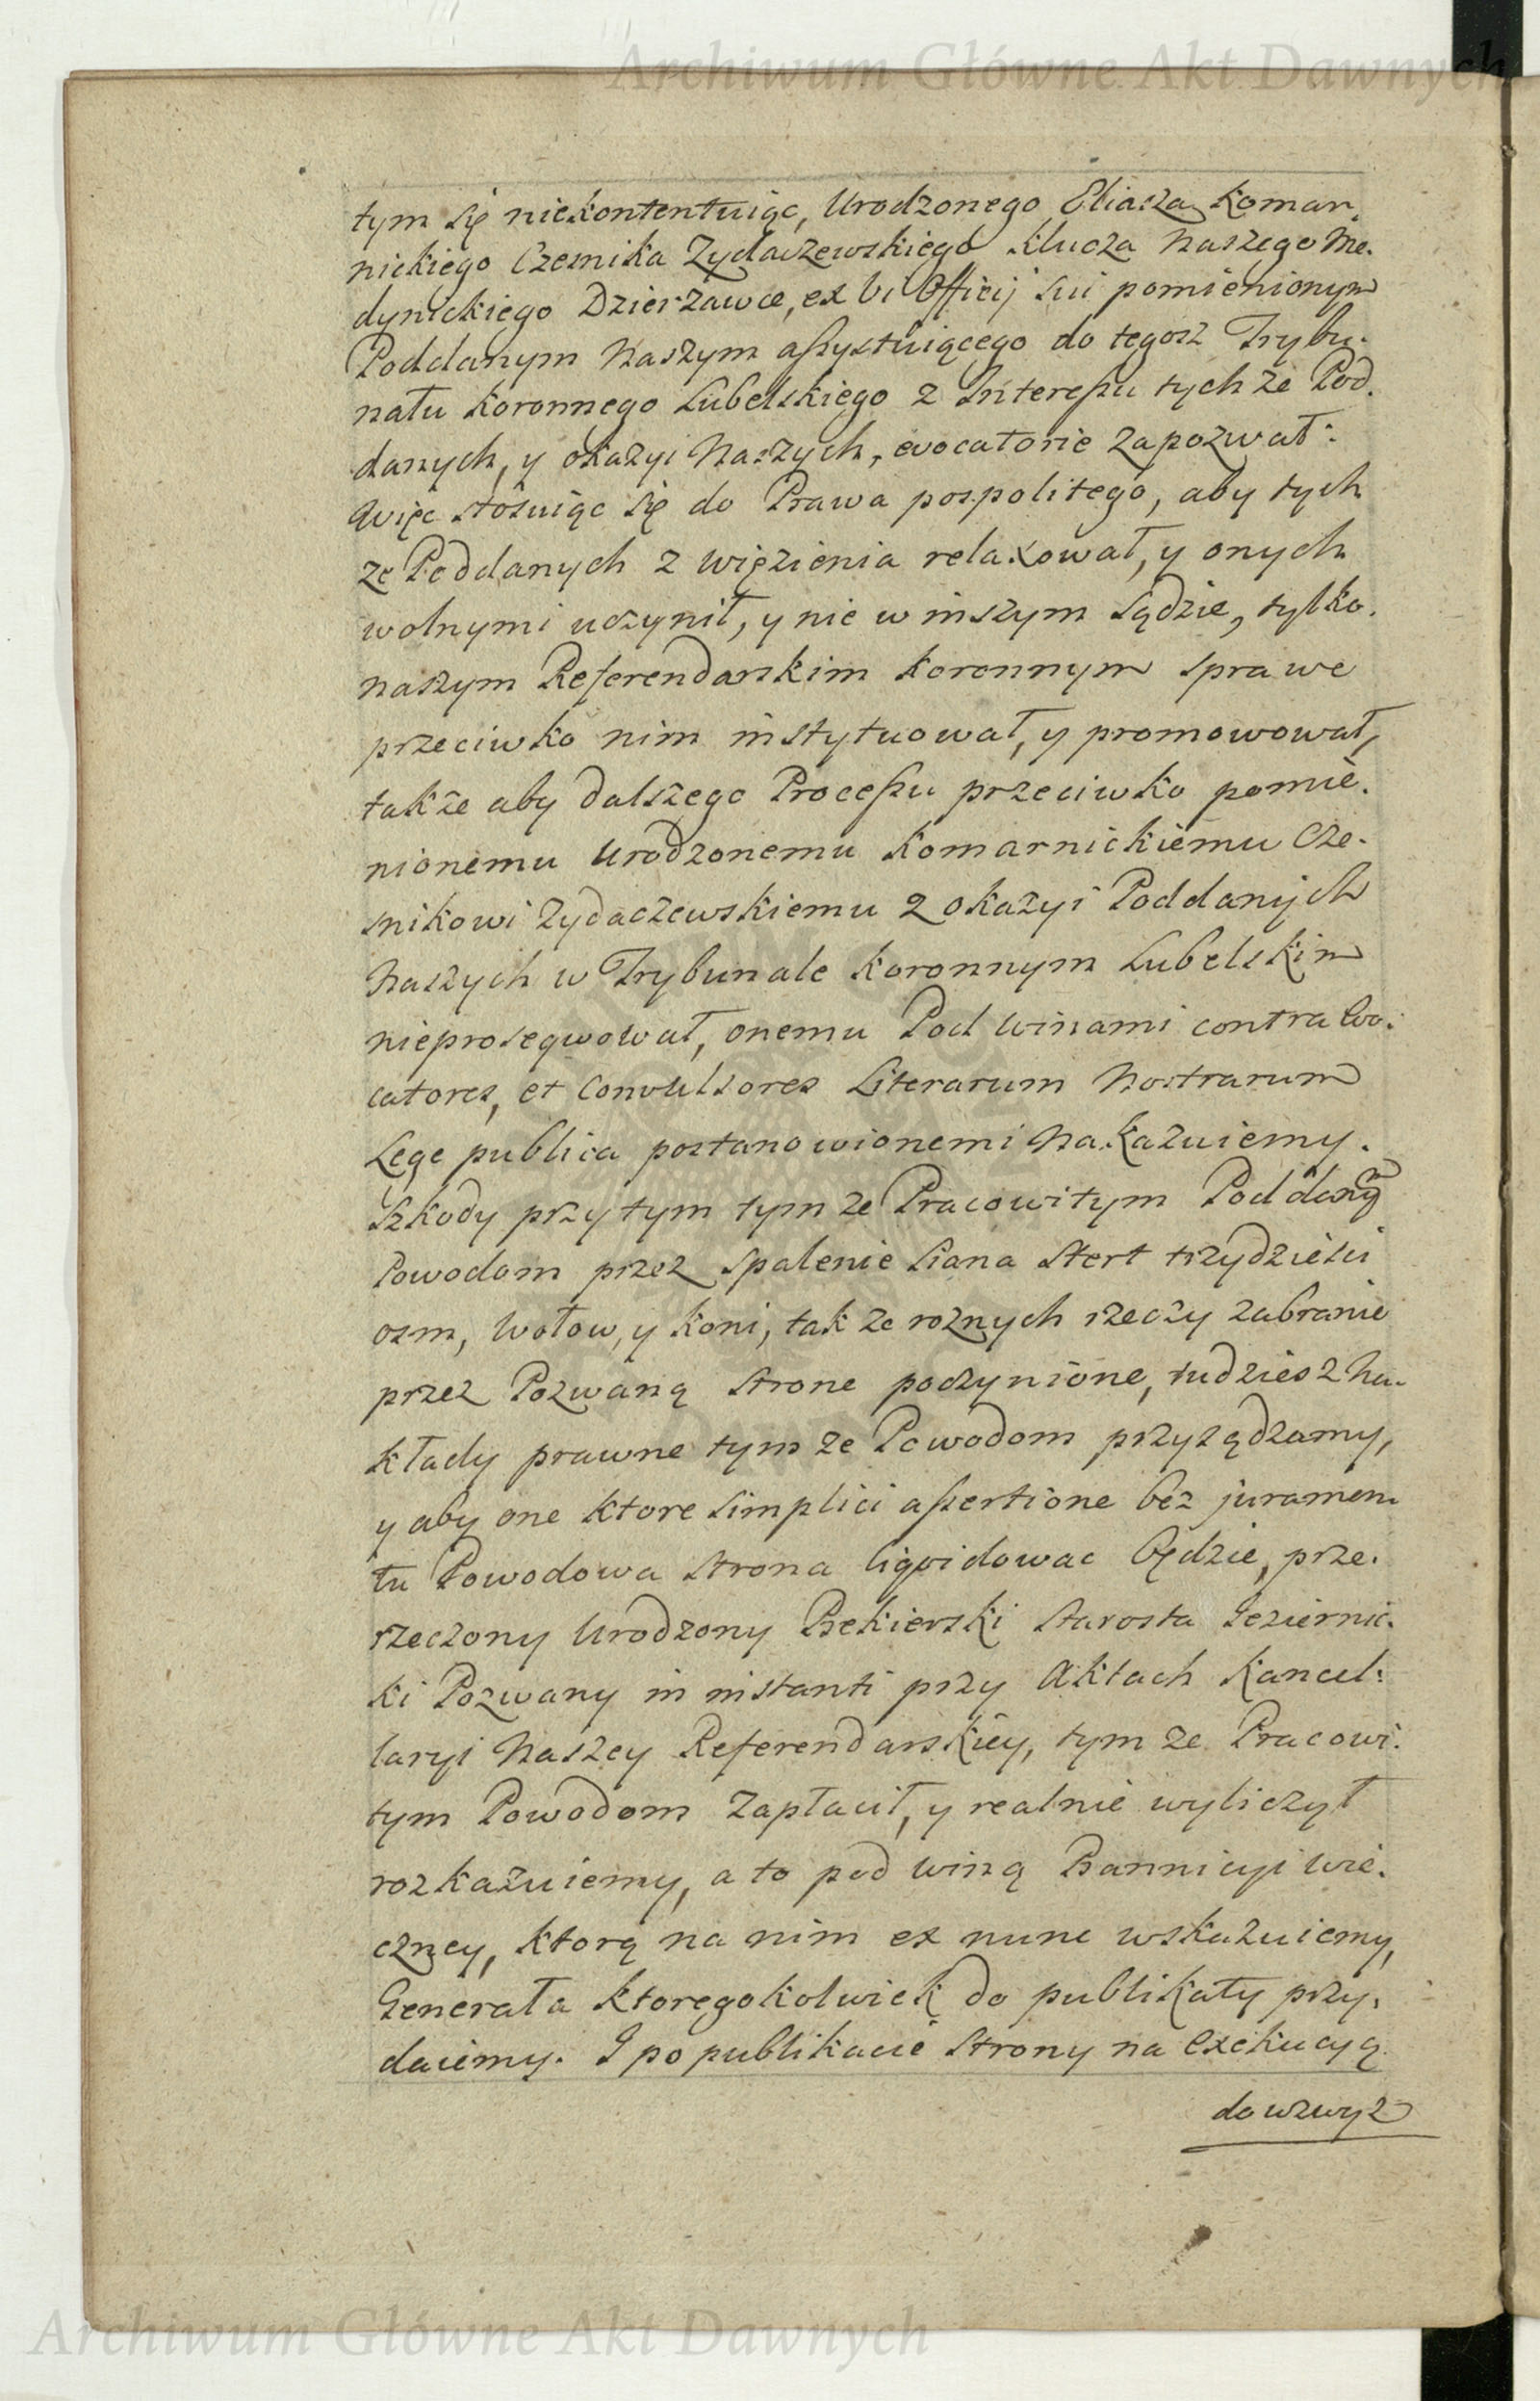 Archiwum Główne Akt Dawnych
tym się niekontentuiąc, Urodzonego Eliasza Komar.
nickiego Czesnika Zydaczewskiego Klucza Naszego Me.
dynickiego Dzierzawce, ex vi Officij sui pomienionym
Poddanym Naszym assystuiącego do tegosz Trybu.
nału Koronnego Lubelskiego z Interessu tychze Pod.
danych, y okazyi Naszych, evocatorie zapozwał:
Więc stosuiąc się do Prawa pospolitego, aby tych
ze Poddanych z więzienia relaxował, y onych
wolnymi uczynił, y nie w inszym Sądzie, tylko.
naszym Referendarskim Koronnym sprawe
przeciwko nim instytuował, y promowował,
także aby dalszego Processu przeciwko pomie.
nionemu Urodzonemu Komarnickiemu Cze.
snikowi Zydaczewskiemu z okazyi Poddanych
Naszych w Trybunale Koronnym Lubelskim
nieprosequował, onemu Pod winami contra Evo.
catores, et Convulsores Literarum Nostrarum
Lege publica postanowionemi Nakazuiemy.
Szkody przytym tymze Pracowitym Poddanym
Powodom przez spalenie siana stert trzydziesci
osm, wołow, y koni, takze roznych rzeczy zabranie
przez Pozwaną strone poczynione, tudziesz Na.
kłady prawne tymze Powodom przysądzamy,
y aby one ktore simplici assertione bez juramen.
tu Powodowa strona liqvidowac będzie, prze.
rzeczony Urodzony Bekierski Starosta Jeziernic.
ki Pozwany in instanti przy Aktach Kancel:
laryi Naszey Referendarskiey, tymze Pracowi.
tym Powodom zapłacił, y realnie wyliczył
rozkazuiemy, a to pod winą Bannicyi wie.
czney, ktorą na nim ex nunc wskazuiemy,
Generała ktoregokolwiek do publikaty przy.
daiemy. I po publikacie strony na exekucyą
do wzwyz
Archiwum Główne Akt Dawnych